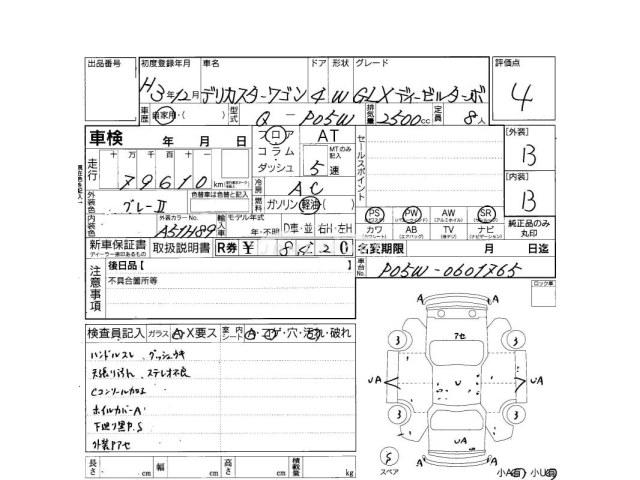 出品番号 初度登録年月 車名 ドア 形状 グレード 評価点
H3年12月 デリカスターワゴン 4 W GLXディーゼルターボ 4
車歴 自家用・( ) 型式 Q - P05W 排気量 2500cc 定員 8人
車検 年 月 日 フロア・コラム・ダッシュ AT MTのみ記入 5速 セールスポイント [外装] B
走行 十 万 千 百 十 一
79610 km
[内装] B
冷房 AC
外装色 グレーII 色替車は色替と記入 燃料 ガソリン 軽油( )
PS PW AW SR
内装色 外装カラーNo. A51H89 輸入車 モデル年式 年・不明 D車・並 右H・左H
カワ AB TV ナビ 純正品のみ丸印
新車保証書 取扱説明書 R券 ¥ 8520 名変期限 月 日迄
ディーラー捺印あるもの
注意事項 後日品【 】
不具合箇所等
車台No. P05W-0601765
ロック車
検査員記入 ガラス A・X要ス 室内 シート A・コゲ・穴・汚れ・破れ
ハンドルスレ ダッシュウキ
天張り汚れ ステレオ不良
Cコンソール加工
ホイルカバーA
下廻り黒P.S
外装Pアセ
長さ cm 幅 cm 高さ cm 積載量 kg
A A
アセ
3 3
UA U A
3 3
UA
A A
S
スペア
小A(有) 小U(有)